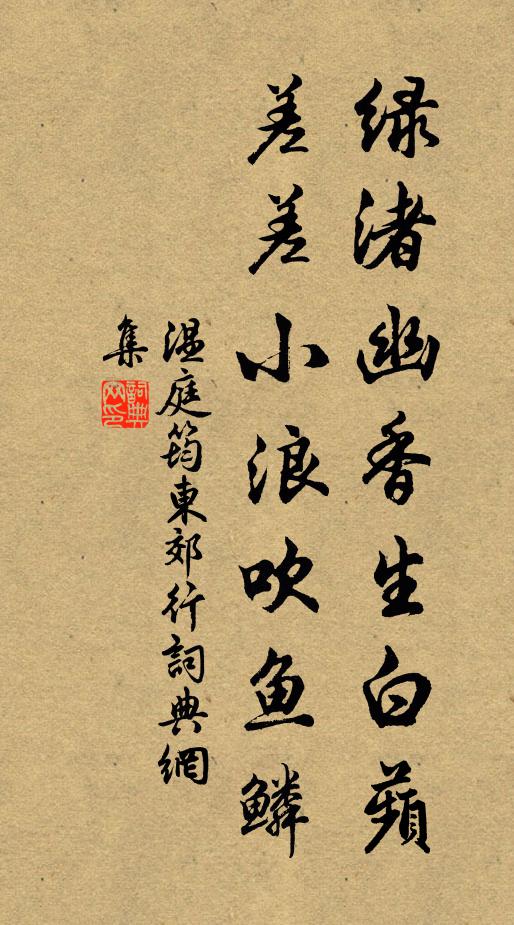 绿渚幽香生白蘋
差差小浪吹鱼鳞
温庭筠東郊行詞典網
集
詞典
网印